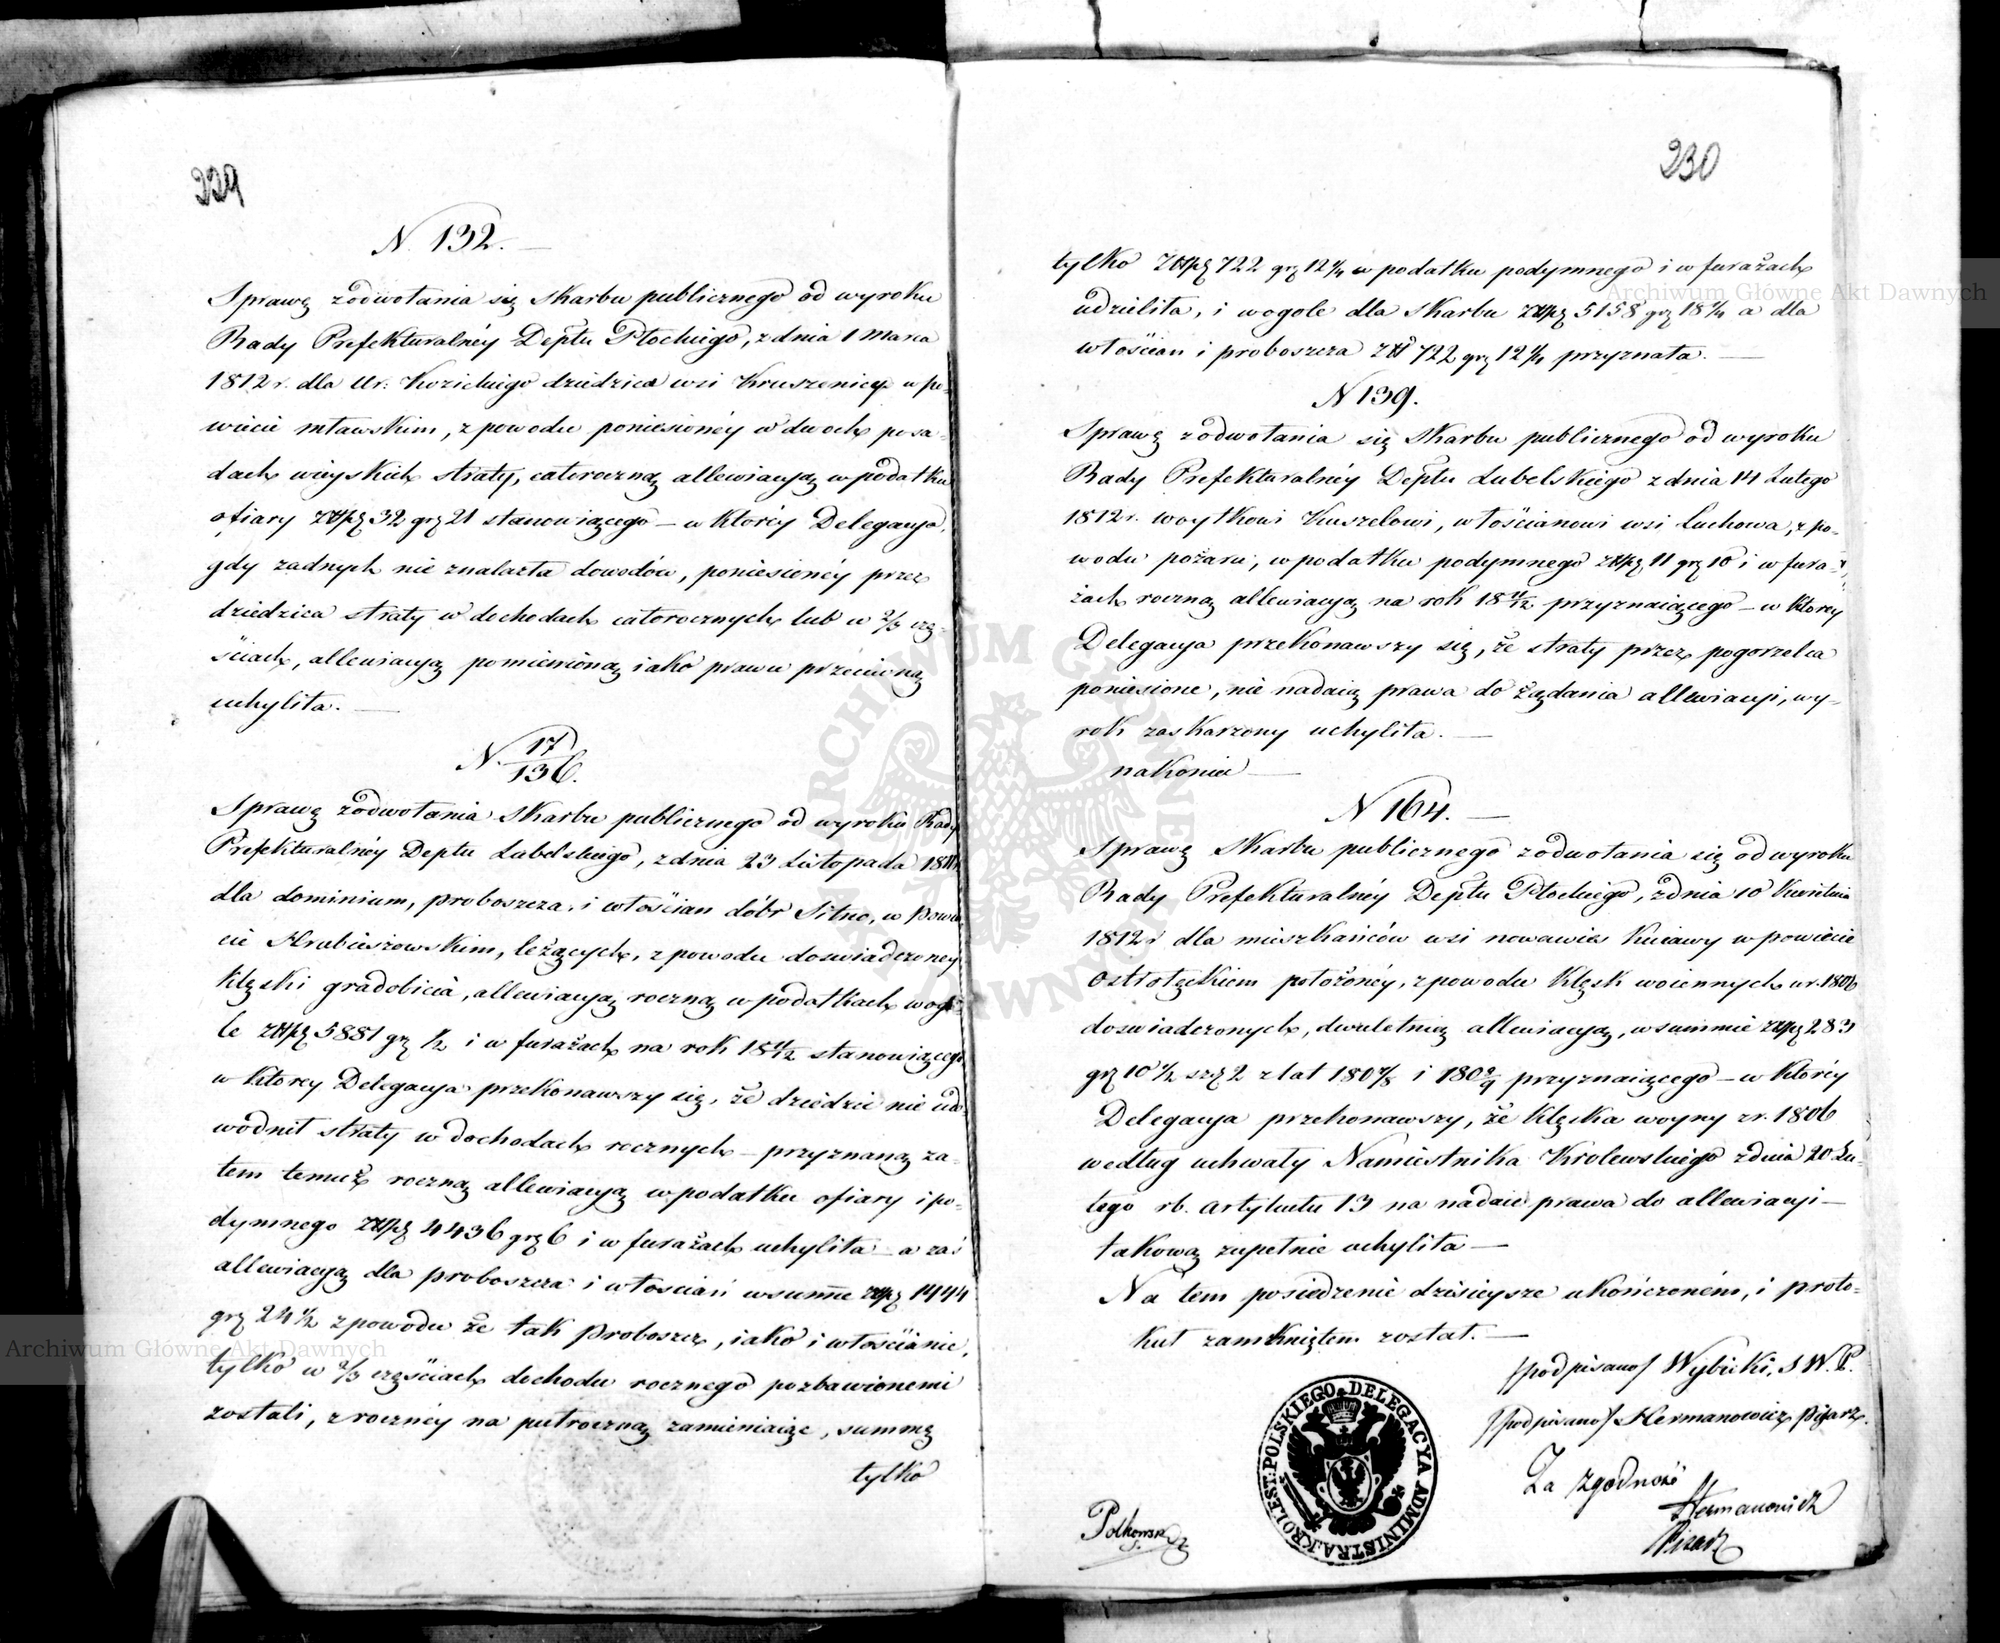 229
N. 132.
Sprawę zodwołania się Skarbu publicznego od wyroku
Rady Prefekturalnéy Deptu Płockiego, z dnia 1 Marca
1812 r. dla Ur: Kozickiego dziedzica wsi Kruszenicy w po-
wiecie mławskim, z powodu poniesionéy w dwoch posa-
dach wieyskich straty, całoroczną allewiacyą w podatku
ofiary złłp 32 gr 21 stanowiącego – w któréy Delegacya,
gdy żadnych nie znalazła dowodów, poniesionéy przez
dziedzica straty w dochodach całorocznych lub w 2/3 czę-
ściach, allewiacyą pomienioną iako prawu przeciwną
uchyliła. —
N. 17/136.
Sprawę zodwołania Skarbu publicznego od wyroku Rady
Prefekturalnéy Deptu Lubelskiego, z dnia 23 Listopada 1811 r.
dla dominium, proboszcza, i włościan dóbr Sitno, w powie
cie Hrubieszowskim, leżących, z powodu doświadczoney
klęski gradobicia, allewiacyą roczną w podatkach wogó-
le złłp 5881 gr 1/2 i w furażach na rok 18 11/12 stanowiącego
w którey Delegacya przekonawszy się, że dziedzic nie udo-
wodnił straty w dochodach rocznych – przyznaną za-
tem temuż roczną allewiacyą w podatku ofiary i po-
dymnego złłp 4436 gr 6 i w furażach uchyliła – a zaś
allewiacyą dla proboszcza i włościan w summe złłp 1444
gr 24 1/2 z powodu że tak Proboszcz, iako i włościanie,
tylko w 2/3 częściach dochodu rocznego pozbawionemi
zostali, z rocznéy na pułroczną zamieniaiąc, summę
tylko
230
tylko złłp 722 gr 12 1/4 w podatku podymnego i w furażach
udzieliła, i wogole dla Skarbu złłp 5158 gr 18 1/4 a dla
włościan i proboszcza złł 722 gr 12 1/4 przyznała. —
N 139.
Sprawę zodwołania się Skarbu publicznego od wyroku
Rady Prefekturalnéy Deptu Lubelskiego z dnia 14 Lutego
1812 r. woytkowi Kuszelowi, włościanowi wsi Luchowa, z po-
wodu pożaru, w podatku podymnego złłp 11 gr 10 i w fura-
żach roczną allewiacyą na rok 18 11/12 przyznaiącego – w którey
Delegacya przekonawszy się, że straty przez pogorzelca
poniesione, nie nadaią prawa do żądania allewiacyi, wy-
rok zaskarzony uchyliła. —
nakoniec —
N 164. —
Sprawę Skarbu publicznego zodwołania się od wyroku
Rady Prefekturalnéy Deptu Płockiego, z dnia 10 Kwietnia
1812 r dla mieszkańców wsi nowawieś Kuiawy w powiecie
Ostrołęckiem położonéy, z powodu klęsk woiennych w r. 1806
doświadczonych, dwuletnią allewiacyą, w summie złłp 283
gr 10 1/2 szl 2 z lat 180 7/8 i 180 8/9 przyznaiącego – w któréy
Delegacya przekonawszy, że klęska woyny z r. 1806
według uchwały Namiestnika Krolewskiego z dnia 20 Lu-
tego rb. artykułu 13 na nadaie prawa do allewiacyi –
takową zupełnie uchyliła —
Na tem posiedzenie dzisieysze ukończoném, i proto-
kuł zamkniętem został. —
/podpisano/ Wybicki, S W. P.
/podpisano/ Hermanowicz Pisarz.
Za zgodność
Hermanowicz
Pisarz
Polkowski
KROLEST: POLSKIEGO DELEGACYA ADMINISTRA:
Archiwum Główne Akt Dawnych
Archiwum Główne Akt Dawnych
ARCHIWUM GŁÓWNE AKT DAWNYCH